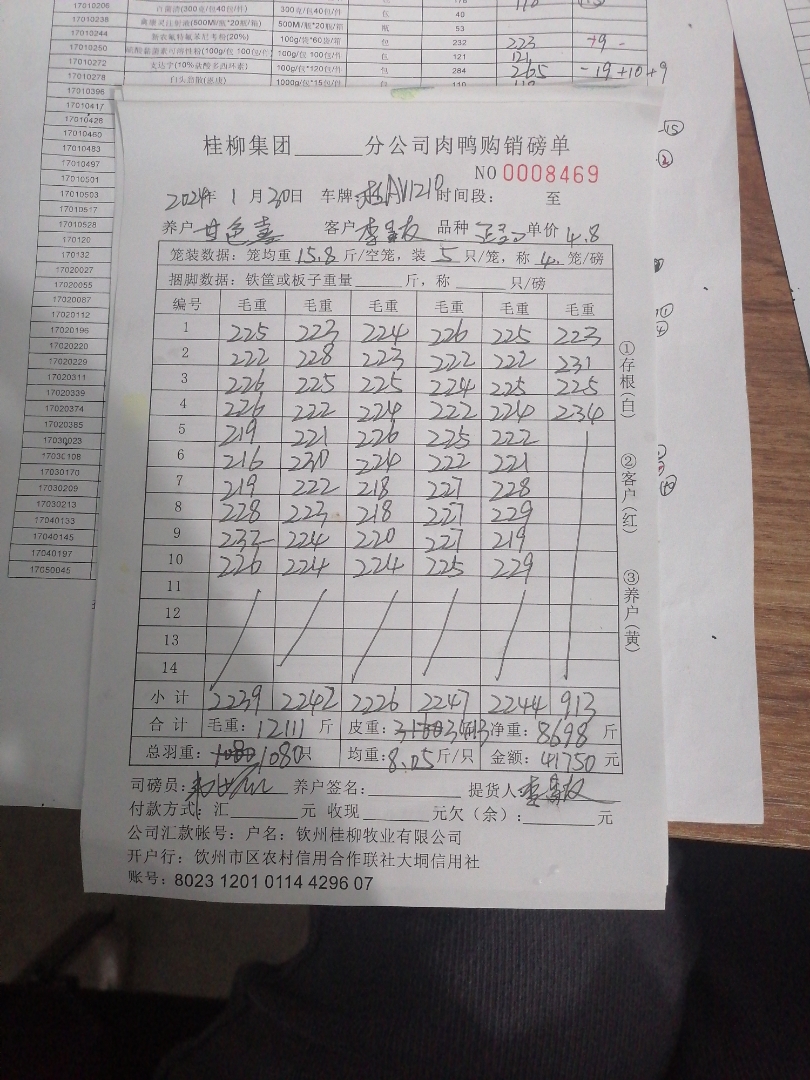 17010206 300克/包40包/件 包
17010238 500M/瓶*20瓶/箱 瓶 53
17010244 100g/袋*60袋/箱 包 232 223 +9 -
17010250 100g/包 100包/件 包 121 121
17010272 100g*120包/件 包 284 265 -19+10+9
17010278 1000g/包*15包/件 包 110
17010396
17010417
17010428
17010460
17010483
17010497
17010501
17010503
17010517
17010528
170120
170132
17020027
17020055
17020087
17020112
17020196
17020220
17020229
17020311
17020339
17020374
17020385
17030023
17030108
17030170
17030209
17030213
17040133
17040145
17040197
17050045
桂柳集团______分公司肉鸭购销磅单
NO 0008469
2024年 1 月 30日 车牌: AV1210 时间段: 至
养户 客户 品种 单价 4.8
笼装数据: 笼均重 15.8 斤/空笼, 装 5 只/笼, 称 4. 笼/磅
捆脚数据: 铁筐或板子重量______斤, 称______只/磅
编号 毛重 毛重 毛重 毛重 毛重 毛重
1 225 223 224 226 225 223
2 222 228 223 222 222 231
3 226 225 225 224 225 225
4 226 222 224 222 224 234
5 219 221 226 225 222
6 216 230 224 222 221
7 219 222 218 227 228
8 228 223 218 227 229
9 232 224 220 227 219
10 226 224 224 225 229
11
12
13
14
小计 2239 2242 2226 2247 2244 913
合计 毛重: 12111 斤 皮重: 3413 净重: 8698 斤
总羽重: 1080只 均重: 8.05斤/只 金额: 41750 元
司磅员: 养户签名:__________ 提货人:
付款方式: 汇______元 收现______元欠(余):______元
公司汇款帐号: 户名: 钦州桂柳牧业有限公司
开户行: 钦州市区农村信用合作联社大垌信用社
账号: 8023 1201 0114 4296 07
①存根(白)
②客户(红)
③养户(黄)